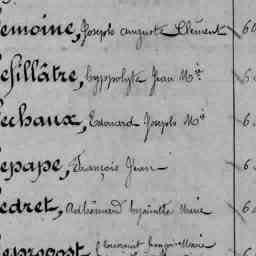 emoine, Joseph auguste Clément 60
efillâtre, hyppolyte Jean M.ie 6
echaux, Edouard Joseph M.ie 6
epape, François Jean 6
edret, Adhémard hyacinthe Marie 6
eprovost, Marie